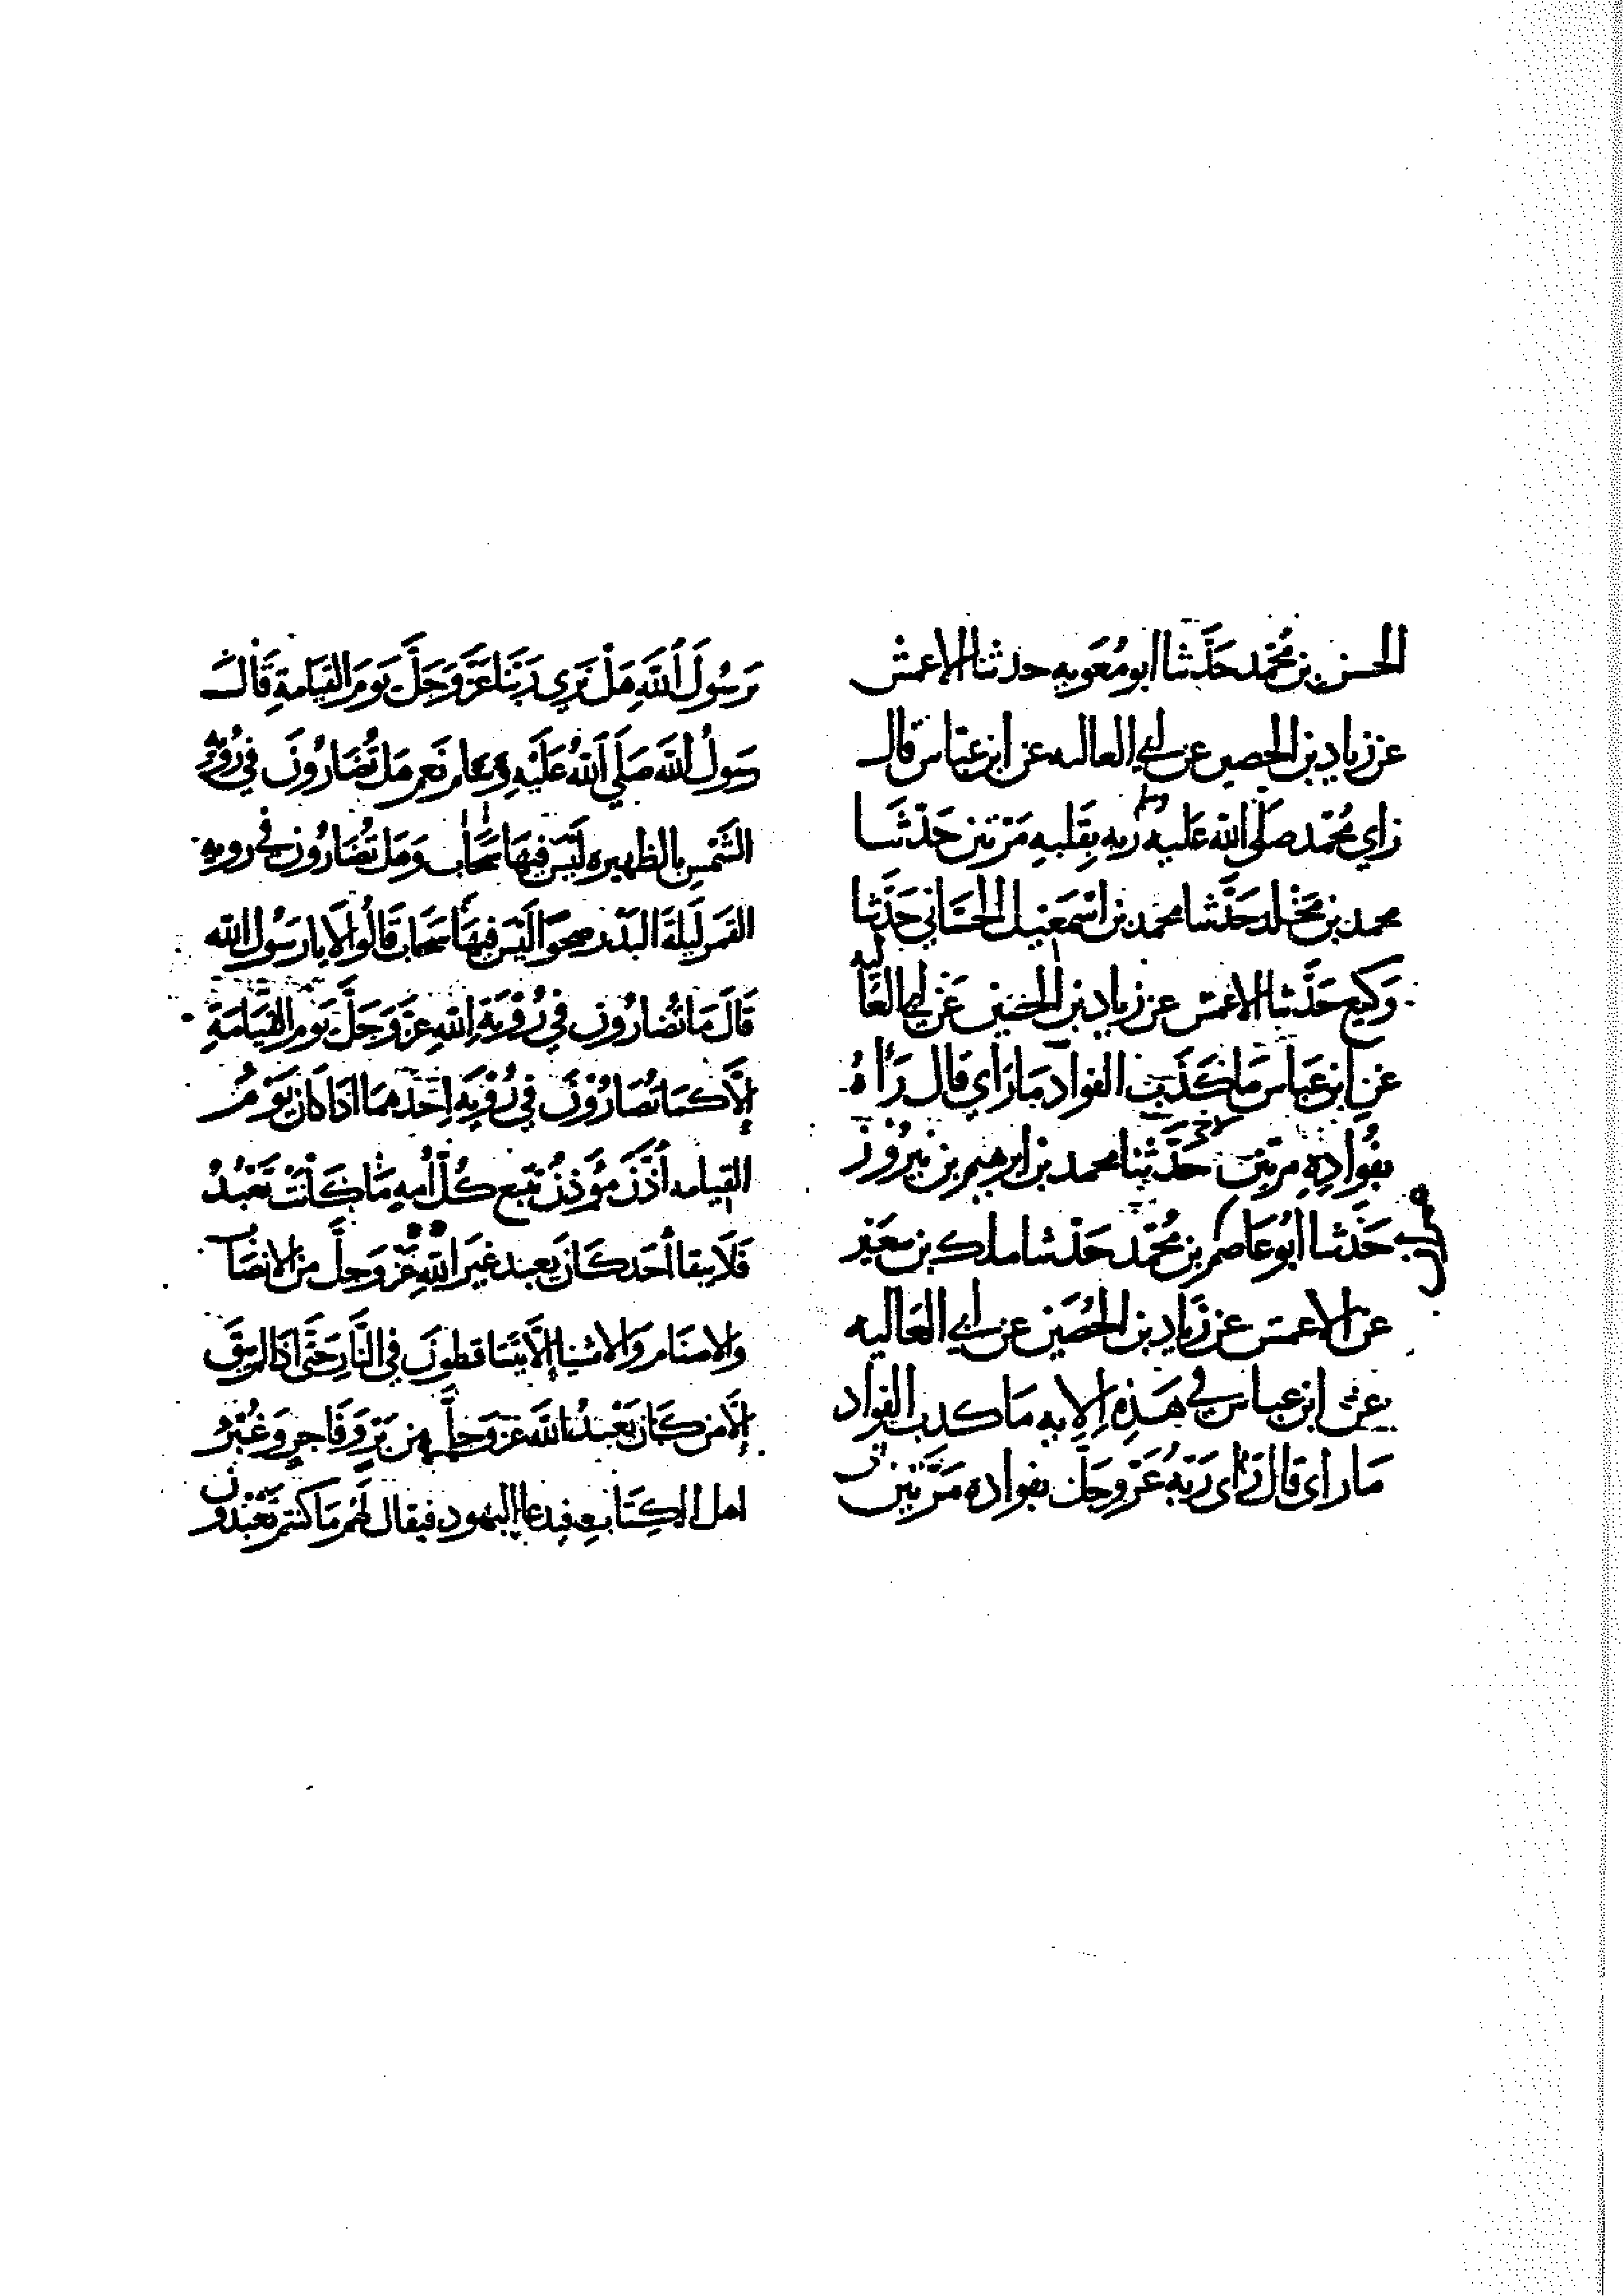 الحسن بن محمد حدثنا ابو معويه حدثنا الاعمش
عن زياد بن الحصين عن ابي العاليه عن ابن عباس قال
راي محمد صلى الله عليه وسلم ربه بقلبه مرتين حدثنا
محمد بن مخلد حدثنا محمد بن اسمعيل الحساني حدثنا
وكيع حدثنا الاعمش عن زياد بن الحصين عن ابي العاليه
عن ابن عباس ما كذب الفواد ما راي قال رآه
بفواده مرتين حدثنا محمد بن ابرهيم بن نيروز
حدثنا ابو عاصم بن محمد حدثنا ملك بن سعير
عن الاعمش عن زياد بن الحصين عن ابي العاليه
عن ابن عباس في هذه الايه ما كذب الفواد
ما راى قال راى ربه عز وجل بفواده مرتين
يرسول الله هل نري ربنا عز وجل يوم القيامة قال
رسول الله صلي الله عليه وسلم نعم هل تضارون في رؤية
الشمس بالظهيره ليس فيها سحاب وهل تضارون في رويه
القمر ليلة البدر صحوا ليس فيها سحاب قالوا لا يا رسول الله
قال ما تضارون في رؤية الله عز وجل يوم القيامة
إلا كما تضارون في رؤيه احدهما اذا كان يوم
القيامه أذن مؤذن تتبع كل أمه ما كانت تعبد
فلا يبقا أحد كان يعبد غير الله عز وجل من الانصاب
والاصنام والاشيا إلا يتساقطون في النار حتى اذا لم يبق
إلا من كان يعبد الله عز وجل من بر وفاجر وغبر
اهل الكتاب فيدعا اليهود فيقال لهم ما كنتم تعبدون